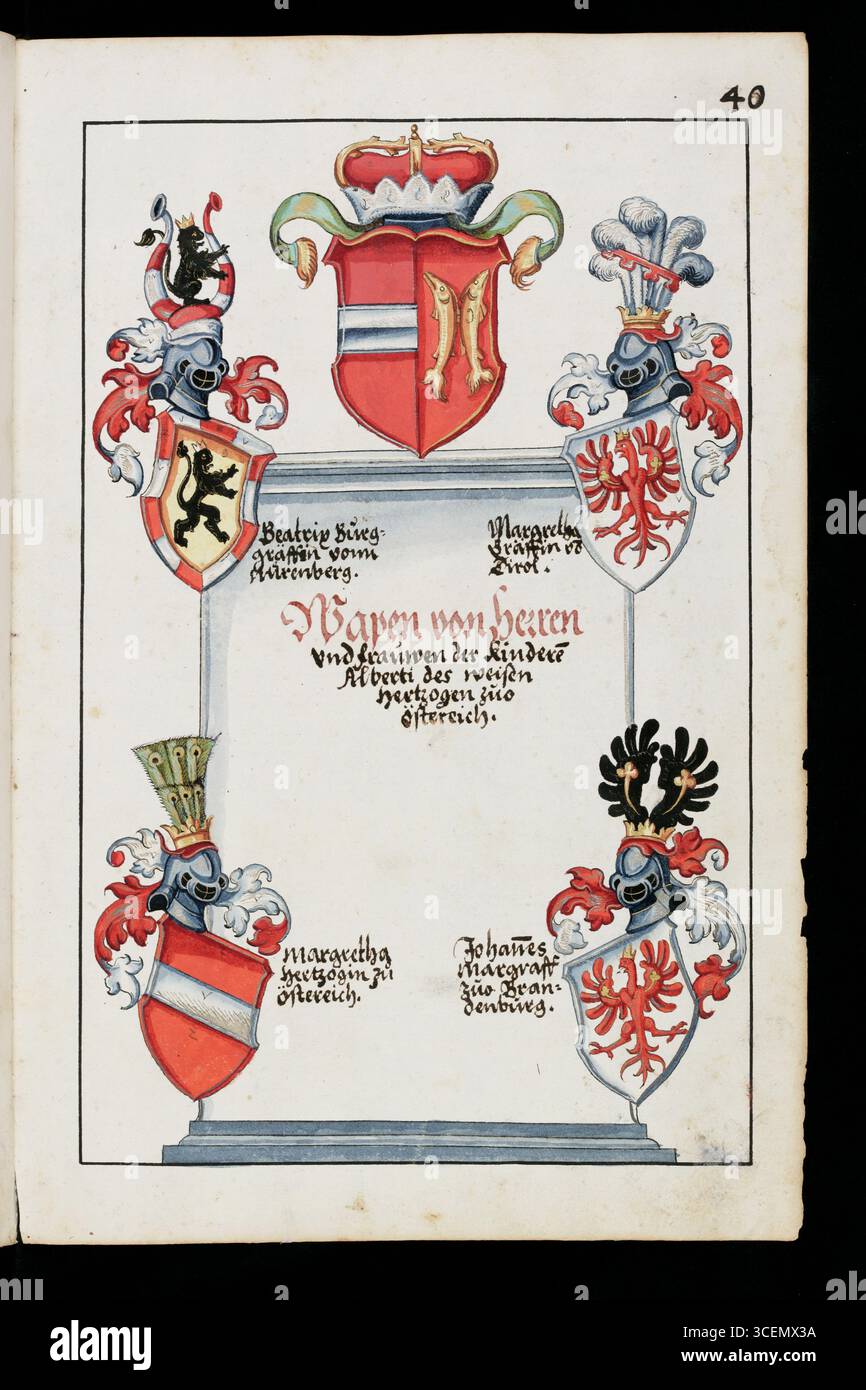 40
Beatrix Burg-
gräffin vonn
Nurenberg.
Margretha
Gräffin vō
Tirol.
Wapen von Herren
vnd frauwen der Kinderē
Alberti des weisen
Hertzogen zuo
Östereich.
Margretha
Hertzogin zu
Östereich.
Johañes
Margraff
zuo Bran-
denburg.
alamy
Image ID: 3CEMX3A
www.alamy.com